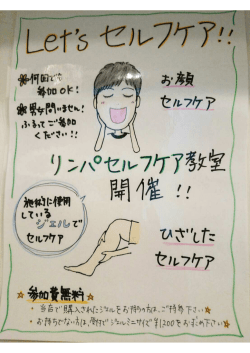 Let's セルフケア!!
※何回でも
参加OK!
※男女問いません!
ふるってご参加
ください!!
お顔
セルフケア
リンパセルフケア教室
開催!!
施術に使用
している
ジェルで
セルフケア
ひざした
セルフケア
☆参加費無料☆
・当店で購入されたジェルをお持ちの方は、ご持参下さい
・お持ちでない方は、
ジェルミニサイズ
¥1200をお求め下さい